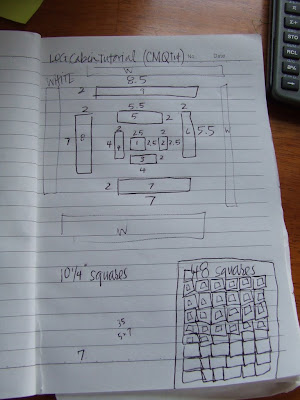 LOG Cabin Tutorial (CMQTut) No. Date
W
8.5
WHITE 2 9
5.5
2 5 2 2
7 8 2 2.5 2 6 5.5 W
4 4 1 2.5 2 2.5
3 2
4
2 7
7
W
10 1/4" squares
48 squares
35
7
STO
RCL